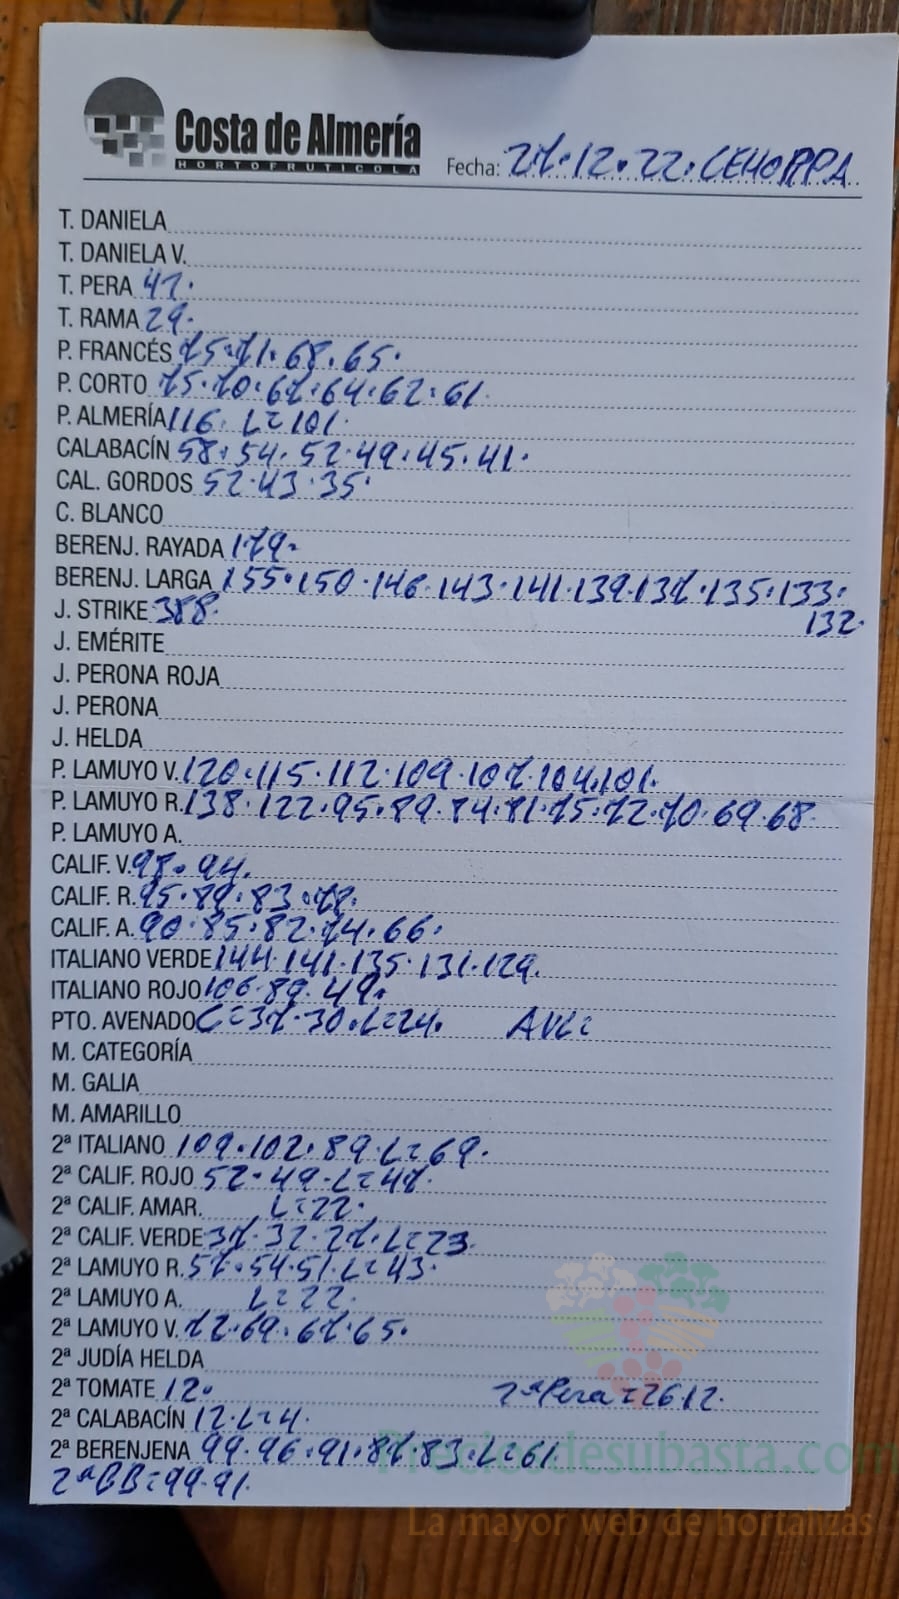 Costa de Almería
HORTOFRUTICOLA
Fecha: 27.12.22. CEHORPA
T. DANIELA
T. DANIELA V.
T. PERA 47.
T. RAMA 29.
P. FRANCÉS 75.71.68.65.
P. CORTO 75.70.67.64.62.61
P. ALMERÍA 116. L=101.
CALABACÍN 58.54.52.49.45.41.
CAL. GORDOS 52.43.35.
C. BLANCO
BERENJ. RAYADA 179.
BERENJ. LARGA 155.150.146.143.141.139.137.135.133.
132.
J. STRIKE 388.
J. EMÉRITE
J. PERONA ROJA
J. PERONA
J. HELDA
P. LAMUYO V. 120.115.112.109.107.104.101.
P. LAMUYO R. 138.122.95.89.84.81.75.72.70.69.68.
P. LAMUYO A.
CALIF. V. 98.94.
CALIF. R. 95.89.83.78.
CALIF. A. 90.85.82.74.66.
ITALIANO VERDE 144.141.135.131.129.
ITALIANO ROJO 106.89.49.
PTO. AVENADO C=37.30.L=24. AVL=
M. CATEGORÍA
M. GALIA
M. AMARILLO
2ª ITALIANO 109.102.89.L=69.
2ª CALIF. ROJO 52.49.L=47.
2ª CALIF. AMAR. L=22.
2ª CALIF. VERDE 37.32.27.L=23.
2ª LAMUYO R. 57.54.51.L=43.
2ª LAMUYO A. L=22.
2ª LAMUYO V. 72.69.67.65.
2ª JUDÍA HELDA
2ª TOMATE 12. 2ª Pera=26.12.
2ª CALABACÍN 12.L=4.
2ª BERENJENA 99.96.91.87.83.L=61.
2ª BB=99.91.
Preciosdesubasta.com
La mayor web de hortalizas